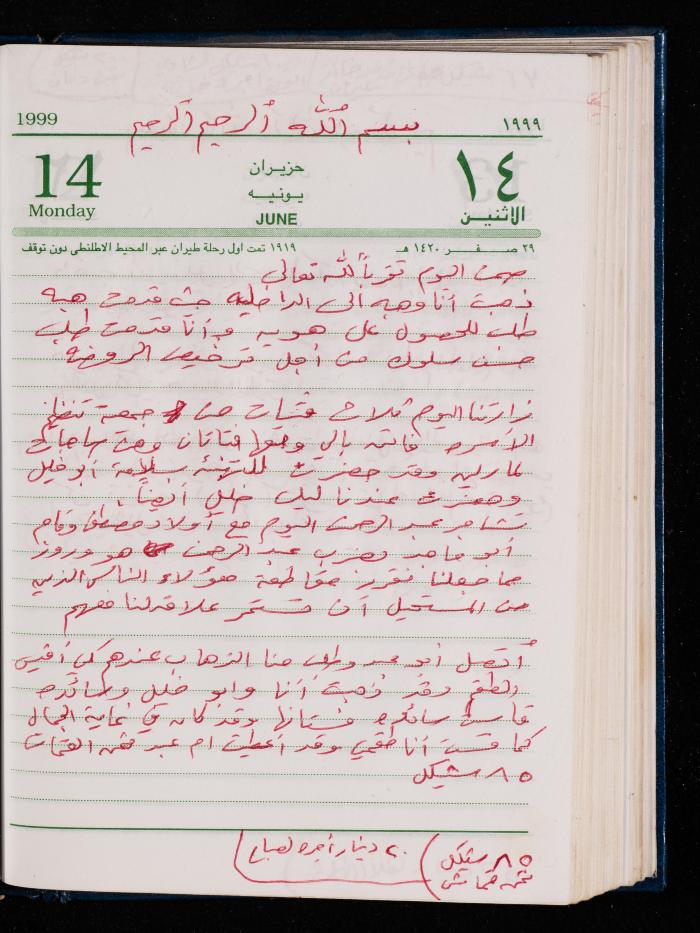 1999
بسم الله الرحيم الرحيم
١٩٩٩
14
Monday
حزيران
يونيه
JUNE
١٤
الاثنين
٢٩ صفر ١٤٢٠ هـ
١٩١٩ تمت اول رحلة طيران عبر المحيط الاطلنطي دون توقف
صمت اليوم تقرباً لله تعالى
ذهبت أنا وهبه الى الداخلية حيث قدمت هبه
طلب للحصول على هويه وأنا قدمت طلب
حسن سلوك من أجل ترخيص الروضة
زارتنا اليوم ثلاث فتيات من جمعية تنظيم
الاسره فاتن بالي ومعها فتاتان
وقد حضرت للتهنئة بسلامة أبو خليل
وحضرت عندنا ليلى خليل أيضاً.
تشاجر عبد الرحمن اليوم مع أولاد مصطفى وقام
أبو ماجد بضرب عبد الرحمن هو وروز
مما جعلنا نقرر مقاطعة هؤلاء الناس الذين
من المستحيل أن تستمر علاقتنا معهم
أتصل أبو عبد وطلب منا الذهاب عندهم كي أقيس
الطقم وقد ذهبت أنا وابو خليل وسائده
قاست سائده فستانها وقد كان في غاية الجمال
كما قست أنا طقمي وقد أعطيت ام عبد ثمن القماش
٨٥ شيكل
٨٥ شيكل
ثمن قماش
٢٠ دينار أجره لصباح